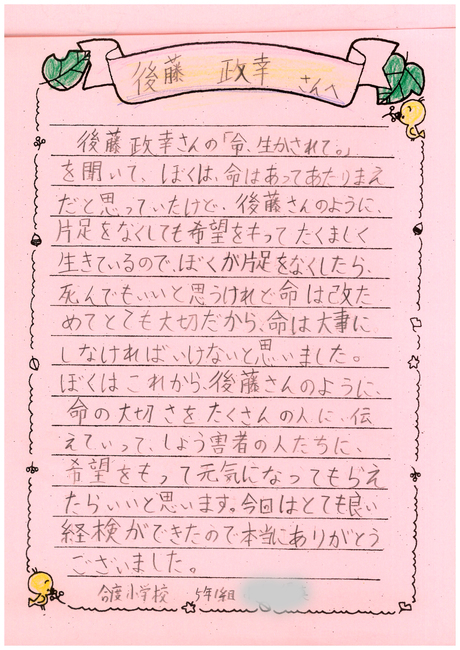 後藤 政幸 さんへ
後藤政幸さんの「命、生かされて。」
を聞いて、ぼくは、命はあってあたりまえ
だと思っていたけど、後藤さんのように、
片足をなくしても希望をもって たくましく
生きているので、ぼくが片足をなくしたら、
死んでもいいと思うけれど命は改た
めてとても大切だから、命は大事に
しなければいけないと思いました。
ぼくはこれから、後藤さんのように、
命の大切さをたくさんの人に、伝
えていって、しょう害者の人たちに、
希望をもって元気になってもらえ
たらいいと思います。今回はとても良い
経検ができたので本当にありがとう
ございました。
小学校 5年1組